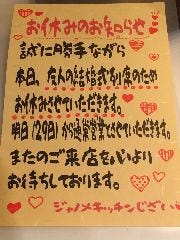 お休みのお知らせ
誠に勝手ながら
本日、友人の結婚式参席のため
お休みさせていただきます。
明日(29日)から通常営業とさせていただきます。
またのご来店を心より
お待ちしております。
ジャノメキッチンござい